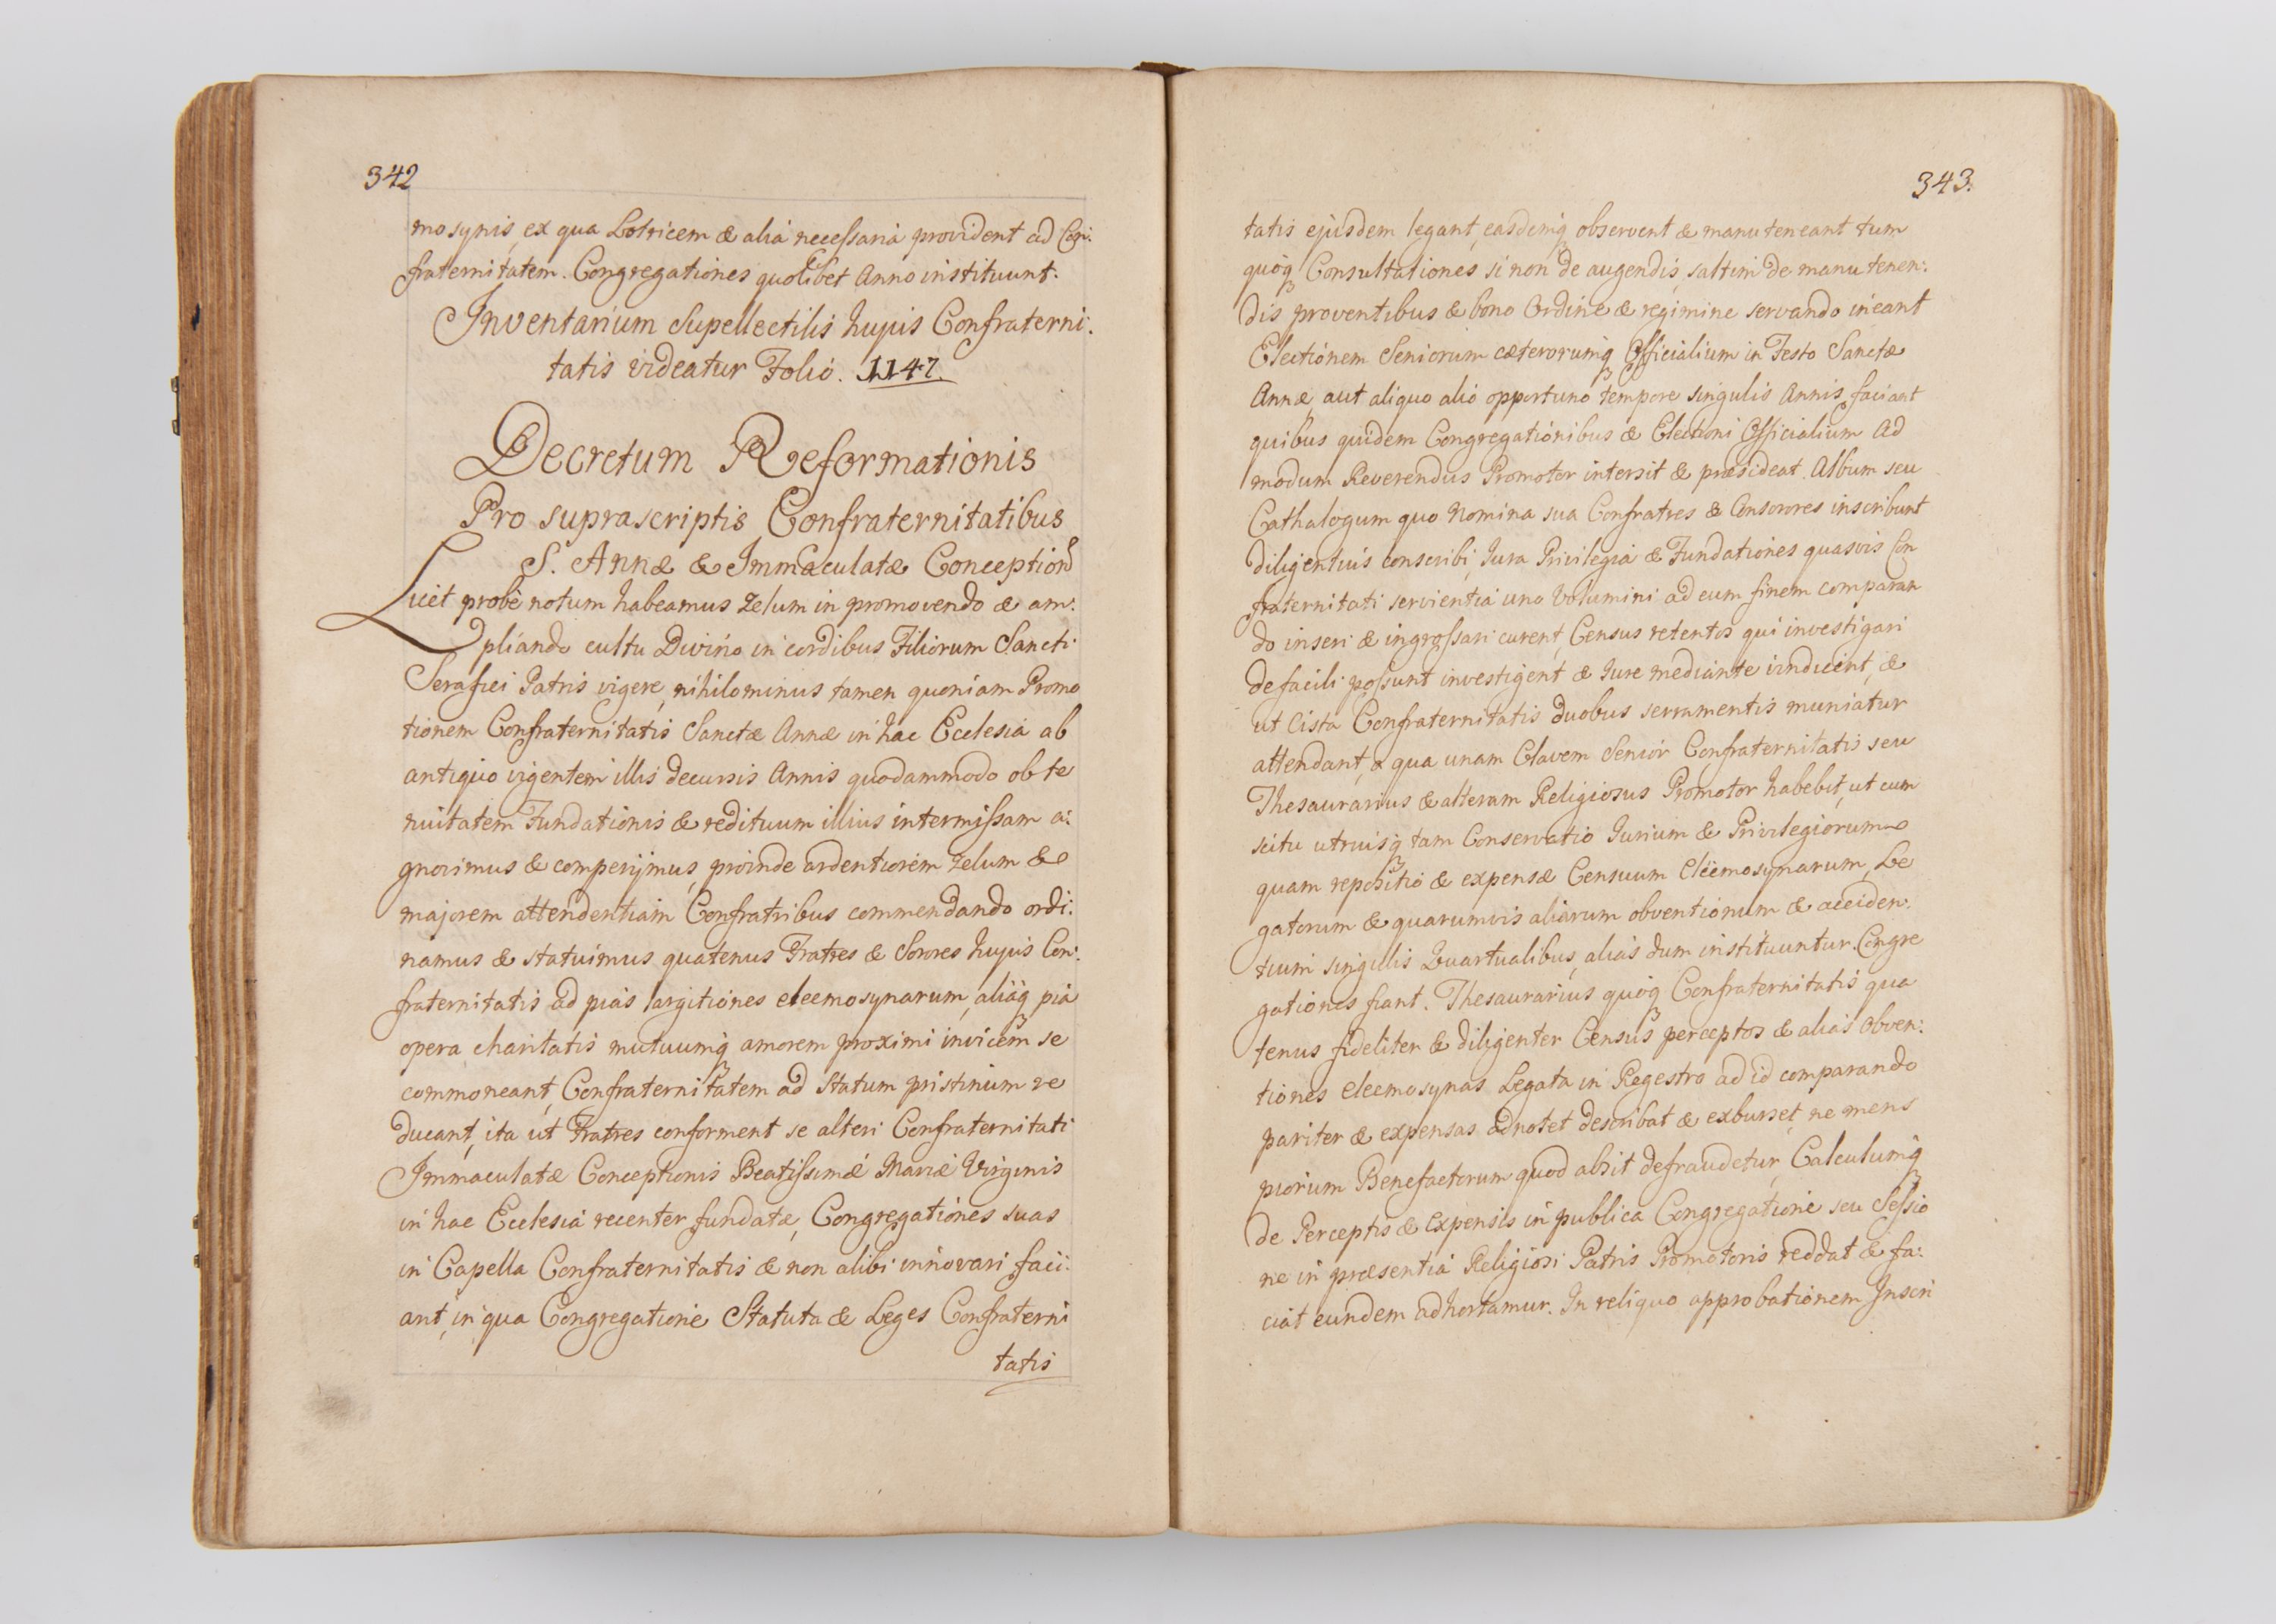 342
mosynis, ex qua Lotricem & alia necessaria provident ad Con:
fraternitatem. Congregationes quolibet Anno instituunt.
Inventarium Supellectilis hujus Confraterni:
tatis videatur Folio. 1147.
Decretum Reformationis
Pro suprascriptis Confraternitatibus
S. Annæ & Immaculatæ Conception
Licet probè notum habeamus Zelum in promovendo & am:
pliando cultu Divino in cordibus Filiorum Sancti
Serafici Patris vigere, nihilominus tamen quoniam Promo
tionem Confraternitatis Sanctæ Annæ in hac Ecclesia ab
antiquo vigentem illis decursis Annis quodammodo ob te
nuitatem Fundationis & redituum illius intermissam a:
gnovimus & comperijmus, proinde ardentiorem zelum &
majorem attendentiam Confratribus commendando ordi:
namus & statuimus quatenus Fratres & Sorores hujus Con:
fraternitatis ad pias largitiones eleemosynarum, aliaq pia
opera charitatis mutuumq amorem proximi invicem se
commoneant, Confraternitatem ad Statum pristinum re
ducant, ita ut Fratres conforment se alteri Confraternitati
Immaculatæ Conceptionis Beatissimæ Mariæ Virginis
in hac Ecclesia recenter fundatæ, Congregationes suas
in Capella Confraternitatis & non alibi innovari faci:
ant, in qua Congregatione Statuta & Leges Confraterni
tatis
343.
tatis ejusdem legant, easdemq observent & manuteneant tum
quoq Consultationes si non de augendis, saltim de manutenen:
dis proventibus & bono Ordine & regimine servando ineant
Electionem Seniorum cæterorumq Officialium in Festo Sanctæ
Annæ, aut aliquo alio opportuno tempore singulis Annis faciant
quibus quidem Congregationibus & Electioni Officialium Ad
modum Reverendus Promotor intersit & præsideat. Album seu
Cathalogum quo Nomina sua Confratres & Consorores inscribunt
diligentius conscribi, Jura Privilegia & Fundationes quasvis Con
fraternitati servientia uno Volumini ad eum finem comparan
do inseri & ingrossari curent, Census retentos qui investigari
de facili possunt investigent & Jure mediante vindicent, &
ut Cista Confraternitatis duobus serramentis muniatur
attendant, a qua unam Clavem Senior Confraternitatis seu
Thesaurarius & alteram Religiosus Promotor habebit, ut cum
scitu utriusq tam Conservatio Jurium & Privilegiorum
quam repositio & expensæ Censuum Eleemosynarum, Le
gatorum & quarumvis aliarum obventionum & acciden:
tium singulis Quartualibus, alias dum instituuntur Congre
gationes fiant. Thesaurarius quoq Confraternitatis qua
tenus fideliter & diligenter Census perceptos & alias Obven:
tiones eleemosynas Legata in Regestro ad id comparando
pariter & expensas adnotet describat & exburset, ne mens
piorum Benefactorum quod absit defraudetur, Calculumq
de Perceptis & Expensis in publica Congregatione seu Sessio
ne in præsentia Religiosi Patris Promotoris reddat & fa:
ciat eundem adhortamur. In reliquo approbationem Inscri